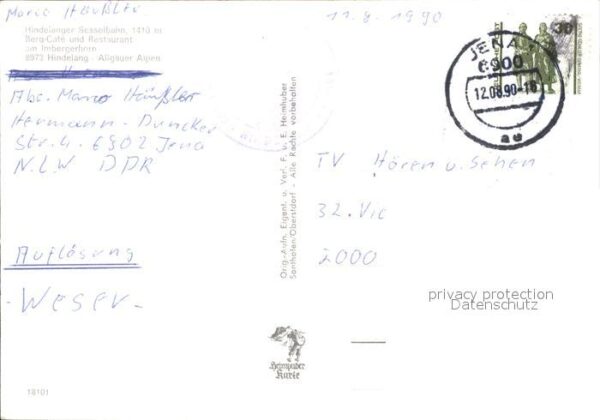 Marco Häußler
11.8.1990
Hindelanger Sesselbahn, 1410 m
Berg-Café und Restaurant
am Imbergerhorn
8973 Hindelang - Allgäuer Alpen
Abs. Marco Häußler
Hermann-Duncker
Str. 4 - 6902 Jena
N.L.W DDR
Auflösung
- Weser -
30
JENA
6900
12.08.90-18
au
TV Hören u. Sehen
32. Vie
2000
Orig.-Aufn. Eigent. u. Verl. F. u. E. Heimhuber
Sonthofen/Oberstdorf - Alle Rechte vorbehalten
privacy protection
Datenschutz
Heimhuber
Karte
18101